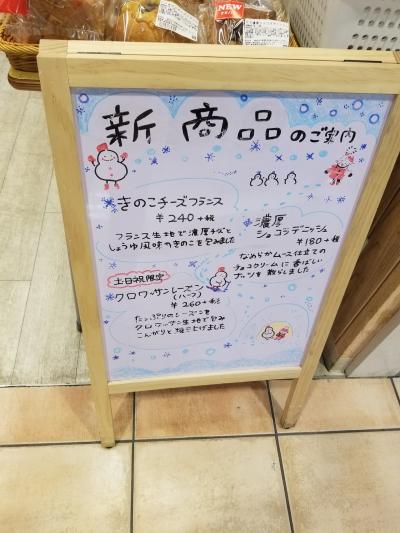 新商品のご案内
きのこチーズフランス
¥240+税
フランス生地で濃厚チーズと
しょうゆ風味のきのこを包みました
濃厚
ショコラデニッシュ
¥180+税
なめらかムース仕立ての
チョコクリームに香ばしい
ナッツを散らしました
土日祝限定
クロワッサンレーズン
(ハーフ)
¥260+税
たっぷりのレーズンを
クロワッサン生地で包み
こんがりと焼き上げました
NEW